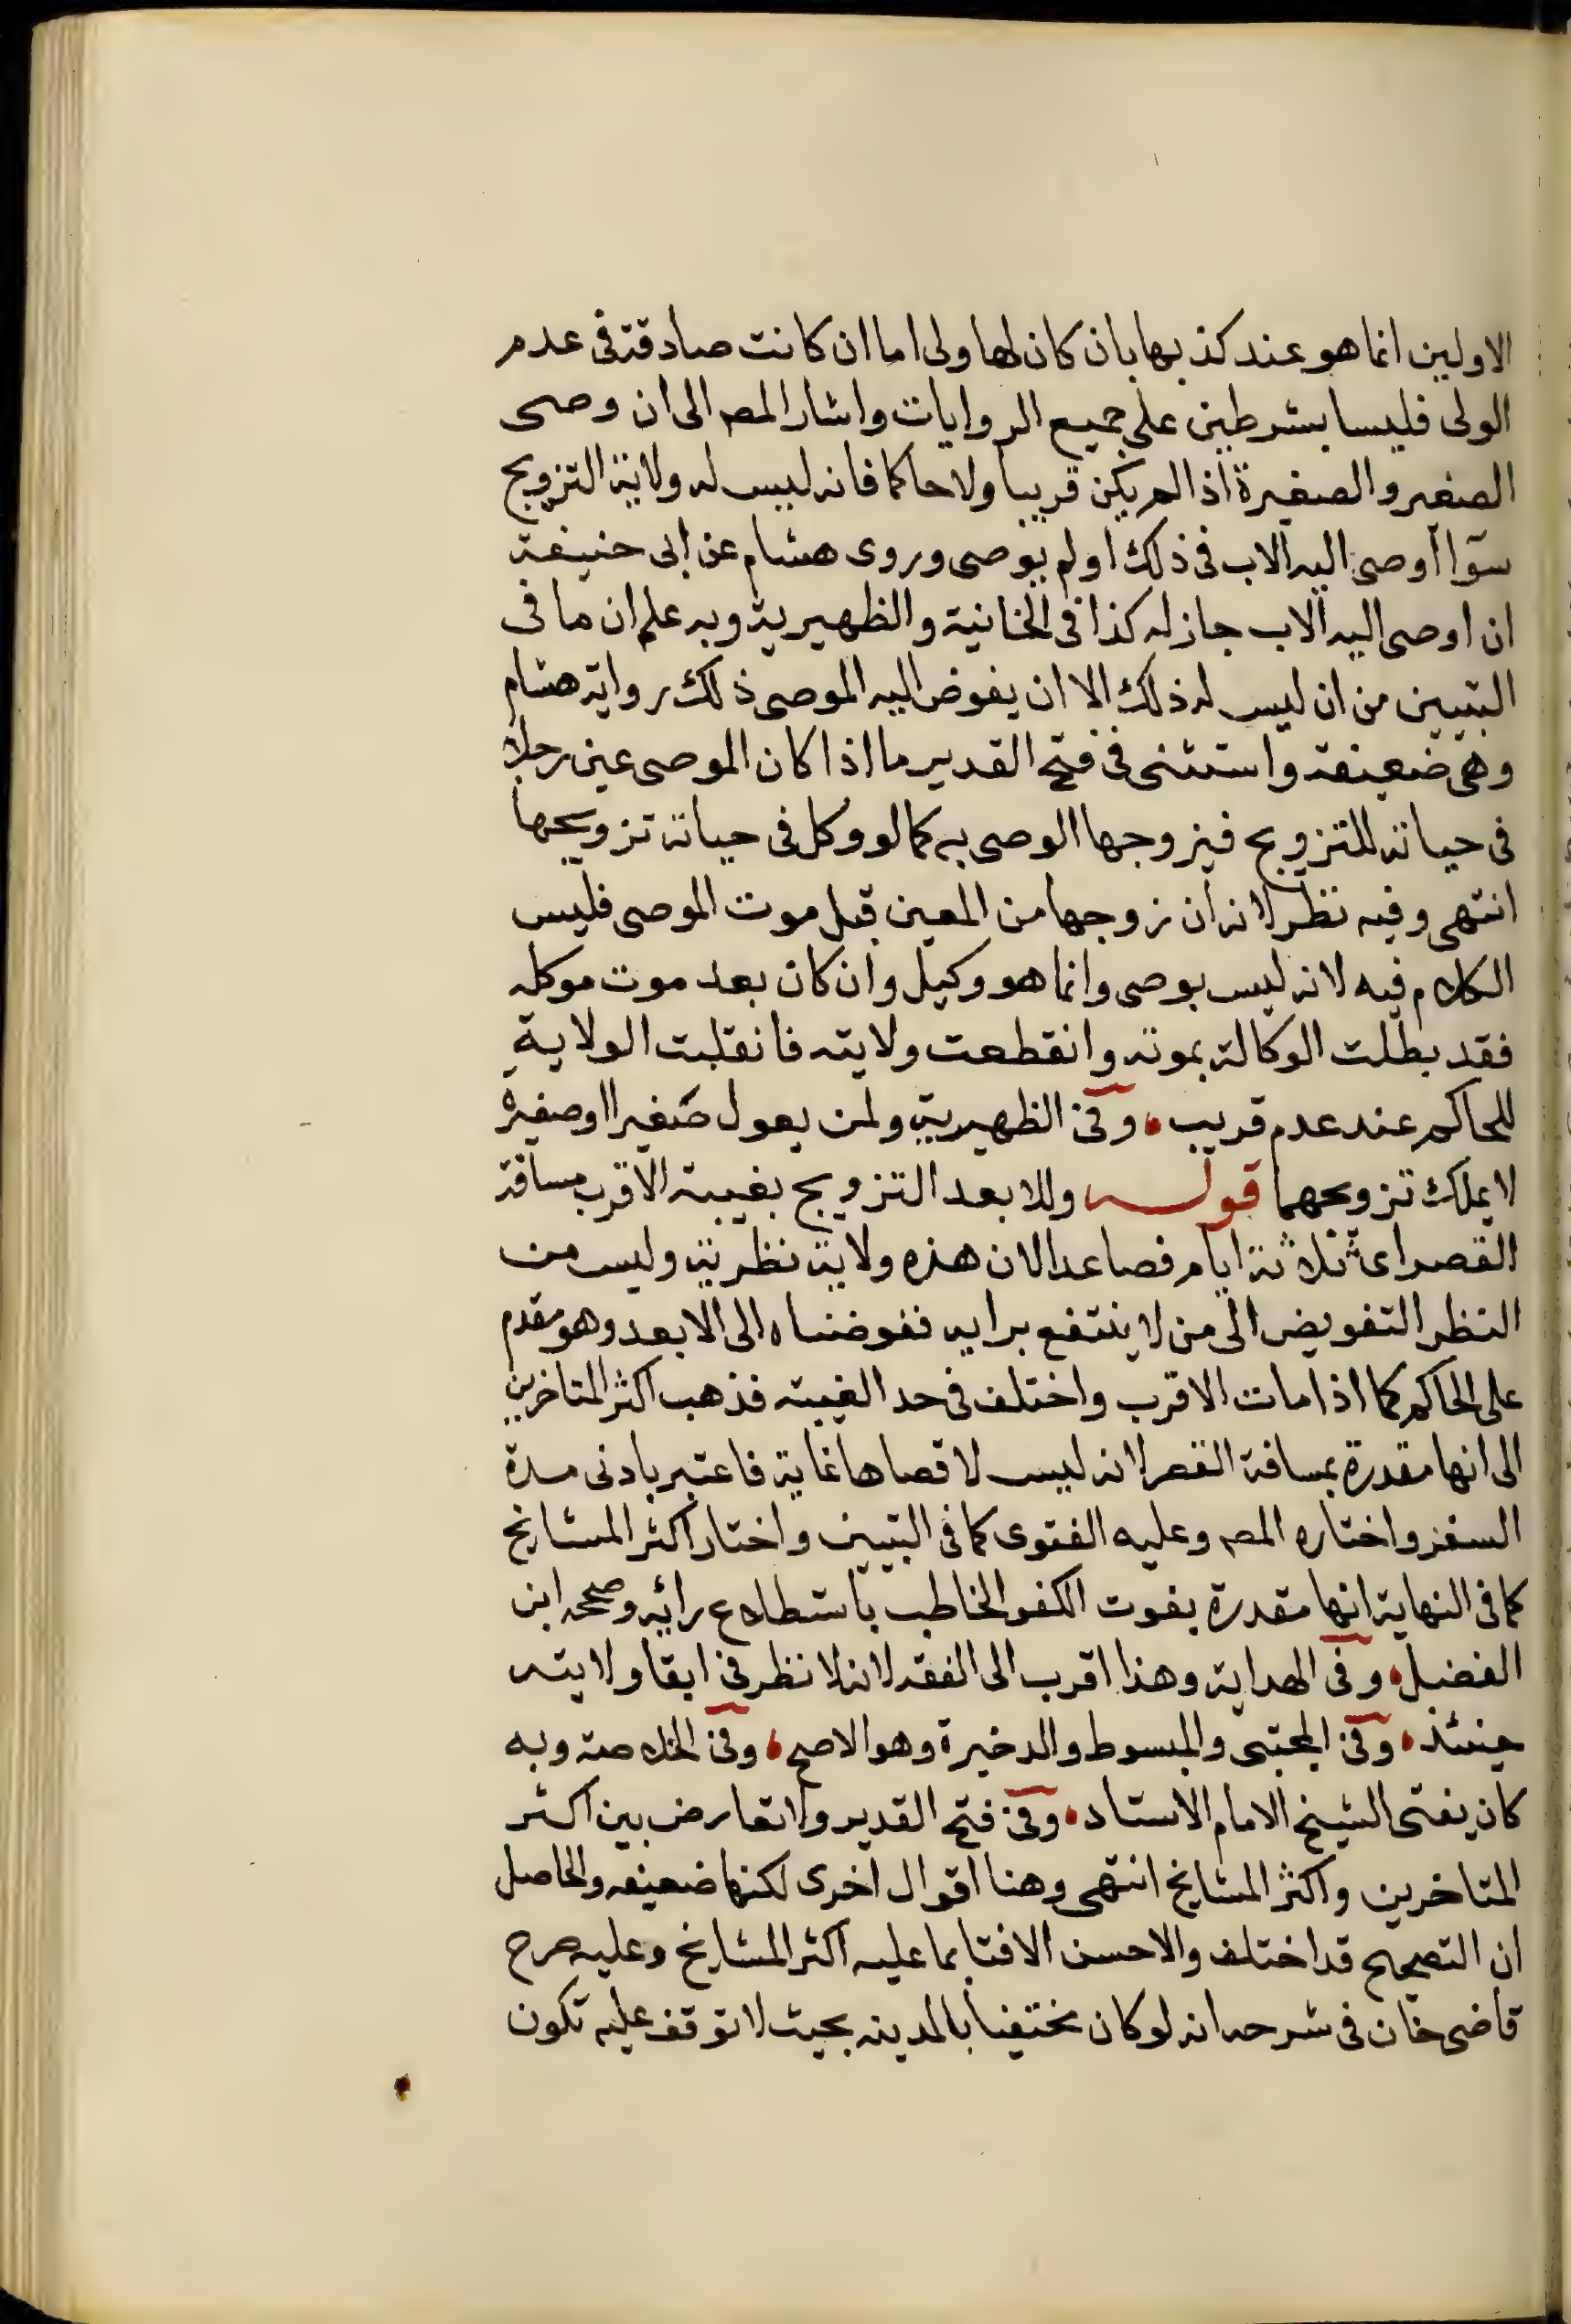 الاولين انما هو عند كذبها بان كان لها ولى اما ان كانت صادقة فى عدم
الولى فليسا بشرطين على جميع الروايات واشار المص الى ان وصى
الصغير والصغيرة اذا لم يكن قريبا ولا حاكما فانه ليس له ولاية التزويج
سوآا أوصى اليه الاب فى ذلك او لم يوصى وروى هشام عن ابى حنيفة
ان اوصى اليه الاب جاز له كذا فى الخانية والظهيرية وبه علم ان ما فى
التبيين من ان ليس له ذلك الا ان يفوض اليه الموصى ذلك رواية هشام
وهى ضعيفة واستثنى فى فتح القدير ما اذا كان الموصى عين رجلا
فى حياته للتزويج فيزوجها الوصى به كما لو وكل فى حياته تزويجها
انتهى وفيه نظر لانه ان زوجها من المعين قبل موت الموصى فليس
الكلام فيه لانه ليس بوصى وانما هو وكيل وان كان بعد موت موكله
فقد بطلت الوكالة بموته وانقطعت ولايته فانقلبت الولاية
للحاكم عند عدم قريب، وفى الظهيرية ولمن يعول صغيرا او صغيرة
لا يملك تزويجهما قوله وللابعد التزويج بغيبة الاقرب مسافة
القصر اى ثلاثة ايام فصاعدا لان هذه ولاية نظرية وليس من
النظر التفويض الى من لا ينتفع برايه ففوضناه الى الابعد وهو مقدم
على الحاكم كما اذا مات الاقرب واختلف فى حد الغيبة فذهب اكثر المتاخرين
الى انها مقدرة بمسافة القصر لانه ليس لاقصاها غاية فاعتبر بادنى مدة
السفر واختاره المص وعليه الفتوى كما فى التبيين واختار اكثر المشايخ
كما فى النهاية انها مقدرة بفوت الكفو الخاطب باستطلاع رائيه وصححه ابن
الفضل، وفى الهداية وهذا اقرب الى الفقه لانه لا نظر فى ابقا ولايته
حينئذ، وفى المجتبى والمبسوط والدخيرة وهو الاصح، وفى الخلاصة وبه
كان يفتى الشيخ الامام الاستاد، وفى فتح القدير ولا تعارض بين اكثر
المتاخرين واكثر المشايخ انتهى وهنا اقوال اخرى لكنها ضعيفه والحاصل
ان التصحيح قد اختلف والاحسن الافتا بما عليه اكثر المشايخ وعليه صرح
قاضى خان فى شرحه انه لو كان مختفيا بالمدينه بحيث لا توقف عليه تكون